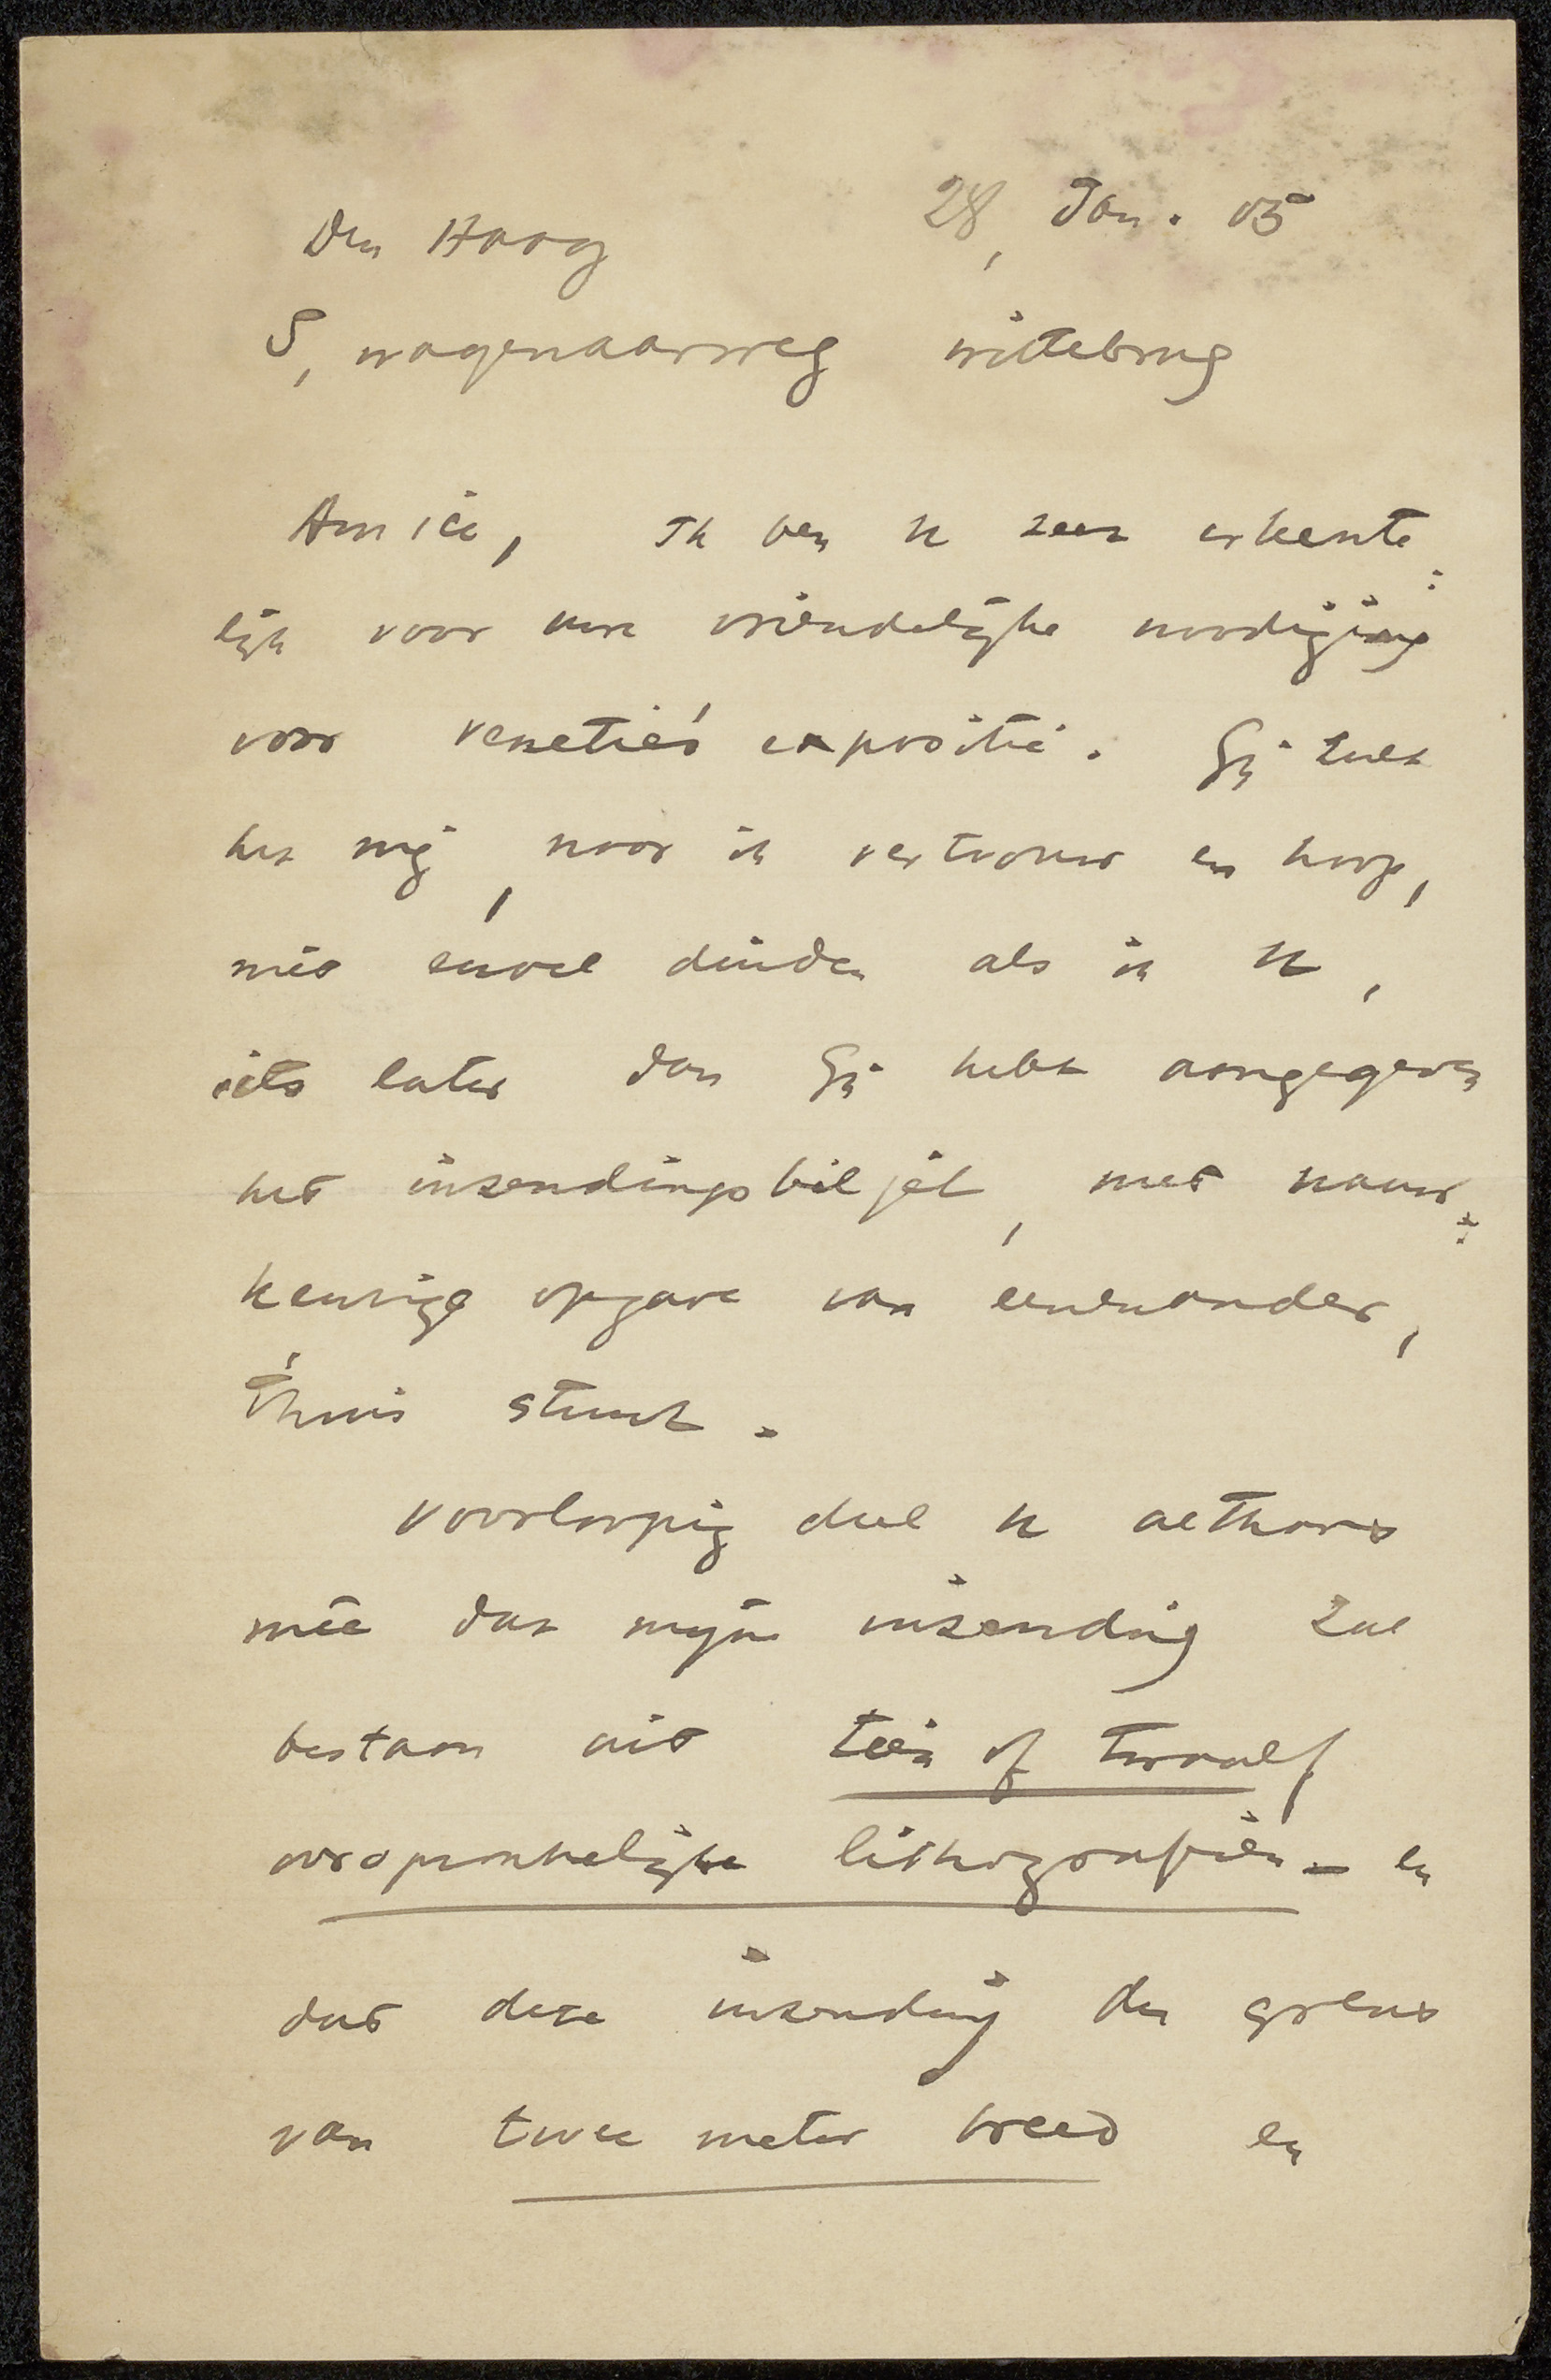 Den Haag 28, Jan. 05
5, wagenaarweg wittebrug
Amice, Ik ben U zeer erkente:
lijk voor uwe vriendelijke noodiging
voor venetië's expositie. Gij zult
het mij, naar ik vertrouw en hoop,
niet euvel duiden als ik U,
iets later dan Gij hebt aangegeven
het inzendingsbiljet, met nauw:
keurige opgave van eenenander,
t'huis stuur.
voorloopig deel U althans
mêe dat mijne inzending zal
bestaan uit tien of twaalf
oorspronkelijke lithografiën – en
dat deze inzending de grens
van twee meter breed en